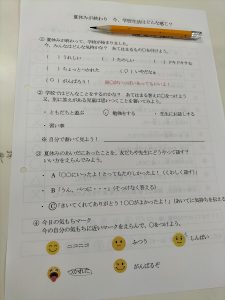 夏休みが終わり 今、学校生活はどんな感じ?
① 夏休みが終わって、学校が始まりました。
今、みんなはどんな気持かな? あてはまるものに○を付けよう。
( )うれしい ( )たのしい ( )ドキドキする
( )ちょっとつかれた (○)いやだなぁ
(○)がんばろう!
② 学校ではどんなことをするのかな? あてはまる答えに○をつけよう
又、先に答えがある児童は思いつくことを書いてみよう。
・ともだちと遊ぶ ・勉強をする ・先生にお話しする
・習い事
※ 自分で書いて見よう!
③ 夏休みのあいだにあったことを、友だちや先生にどうやって話す?
いい方をえらんでみよう。
・A「○○にいったよ!とってもたのしかったよ!(くわしく話す)
・B「うん、べつに・・・」(そっけなく答える)
・C「きいてくれてありがとう!○○がよかったよ!」
④ 今日の気もちマーク
今の自分の気もちに近いマークをえらんで、○をつけよう。
ニコニコ ふつう しんぱい
つかれた がんばるぞ